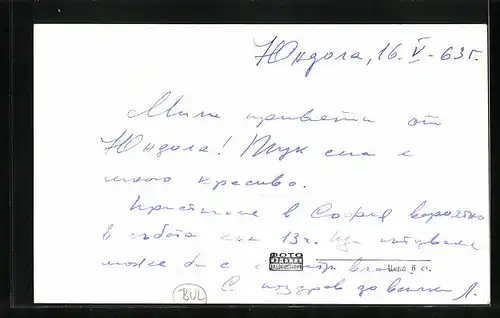 Юндола, 16. V - 63 г.
Мили привети от
Юндола! Тук сме е
много красиво.
Пристигаме в София вероятно
в събота към 13 ч.
може би с
ФОТО
Цена 6 ст.
С поздрав до всички Л.
BUL